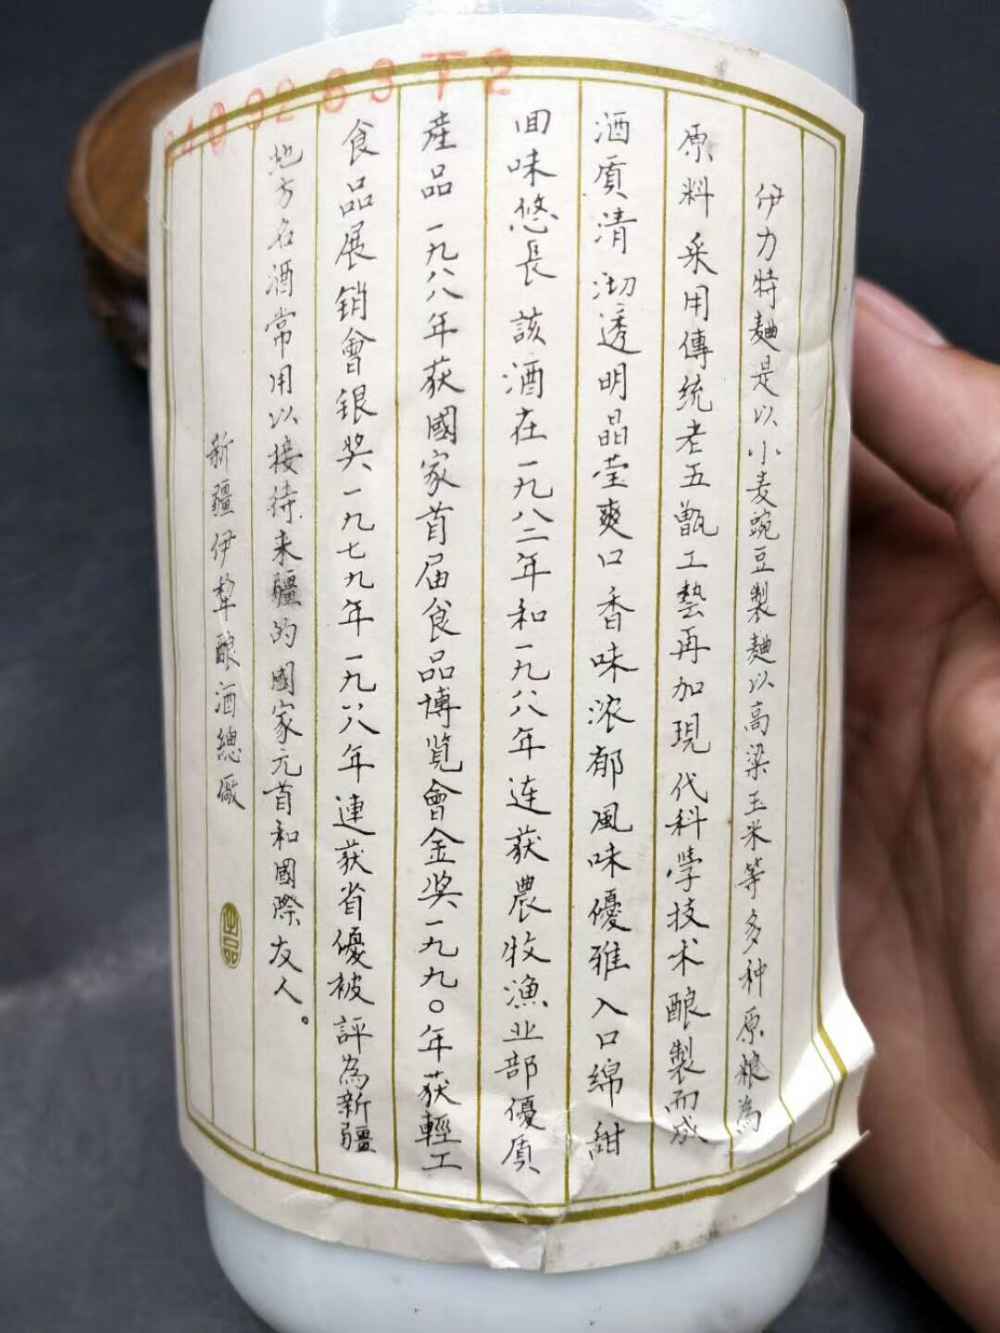 伊力特麯是以小麦豌豆製麯以高梁玉米等多种原粮為
原料采用傳统老五甑工藝再加現代科學技术酿製而成
酒质清沏透明晶莹爽口香味浓郁風味優雅入口绵甜
回味悠長該酒在一九八二年和一九八八年连获農牧渔业部優质
産品一九八八年获國家首届食品博览會金奖一九九〇年获輕工
食品展销會银奖一九七九年一九八八年連获省優被評為新疆
地方名酒常用以接待来疆的國家元首和國際友人。
新疆伊犂酿酒總厰